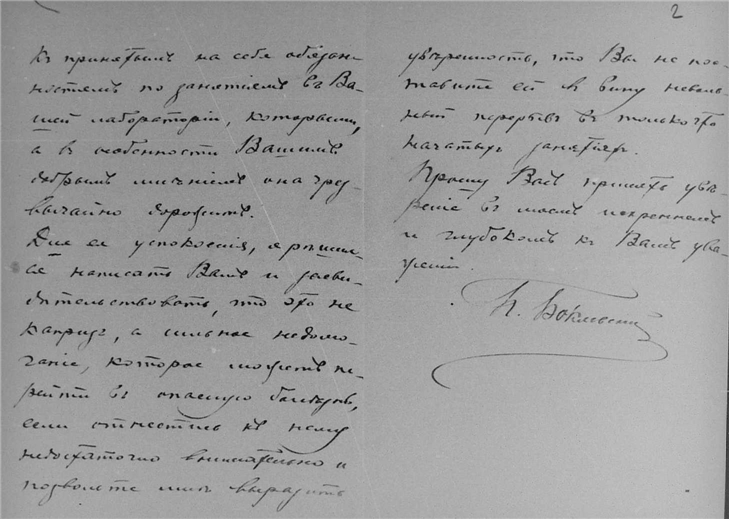 къ принятымъ на себя обязан-
ностямъ по занятіямъ въ Ва-
шей лабораторіи, которыми,
а въ особенности Вашимъ
добрымъ мнѣніемъ она чрез-
вычайно дорожитъ.
Для ея успокоенія, я рѣшил-
ся написать Вамъ и засви-
дѣтельствовать, что это не
капризъ, а сильное недомо-
ганіе, которое можетъ пе-
рейти въ опасную болѣзнь,
если отнестись къ нему
недостаточно внимательно и
позвольте мнѣ выразить
2
увѣренность, что Вы не пос-
тавите ей въ вину неволь-
ный перерывъ въ только что
начатыхъ занятіяхъ.
Прошу Васъ принять увѣ-
реніе въ моемъ искреннемъ
и глубокомъ къ Вамъ ува-
женіи.
Боклевскій